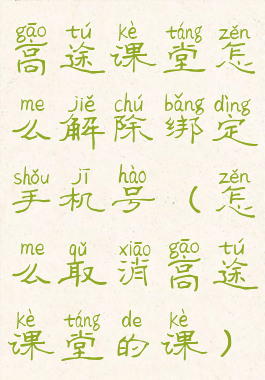 gāo tú kè táng zěn
高途课堂怎
me jiě chú bǎng dìng
么解除绑定
shǒu jī hào zěn
手机号（怎
me qǔ xiāo gāo tú
么取消高途
kè táng de kè
课堂的课）